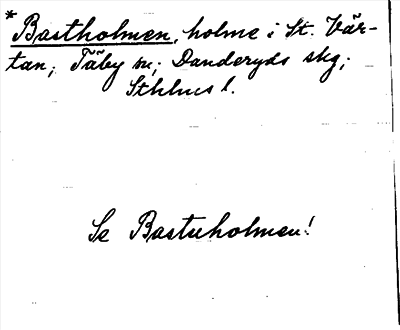 * Bastholmen, holme i St. Vär-
tan; Täby sn; Danderyds skg;
Sthlms l.
Se Bastuholmen!